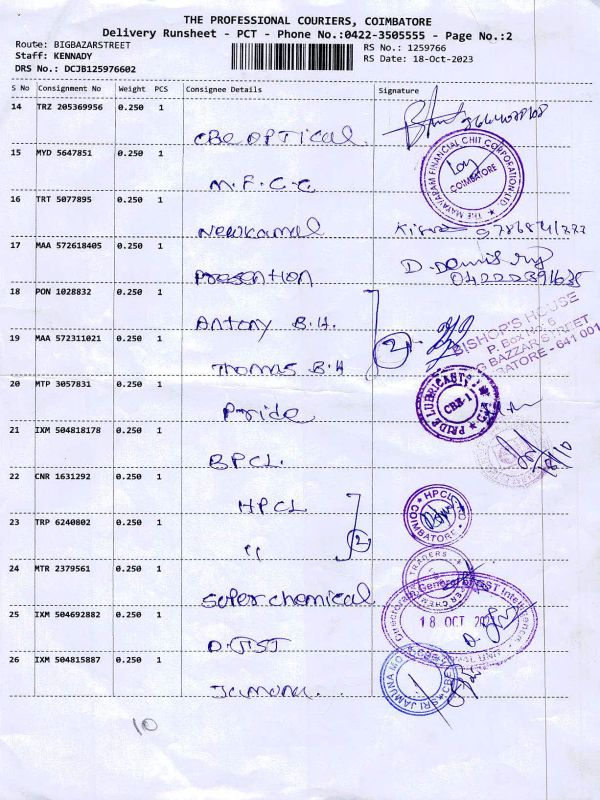 THE PROFESSIONAL COURIERS, COIMBATORE
Delivery Runsheet - PCT - Phone No.:0422-3505555 - Page No.:2
Route: BIGBAZARSTREET
Staff: KENNADY
DRS No.: DCJB125976602
RS No.: 1259766
RS Date: 18-Oct-2023
S No Consignment No Weight PCS Consignee Details Signature
14 TRZ 205369956 0.250 1
CBE OPTICAL
15 MYD 5647851 0.250 1
M.F.C.C
THE MAYAVARAM FINANCIAL CHIT CORPORATION LTD
COIMBATORE
16 TRT 5077895 0.250 1
Newkamal
17 MAA 572618405 0.250 1
Presention
D. Dennis
18 PON 1028832 0.250 1
Antony B.H.
2
BISHOP'S HOUSE
P. Box No. 6
BAZZAR STREET
641 001
19 MAA 572311021 0.250 1
Thomas B.H
20 MTP 3057831 0.250 1
Pride
PRIDE LUBRICANTS
CBE-1
21 IXM 504818178 0.250 1
BPCL.
18/10
22 CNR 1631292 0.250 1
HPCL
HPCL
COIMBATORE
23 TRP 6240802 0.250 1
"
2
24 MTR 2379561 0.250 1
Super chemical
TRADERS
25 IXM 504692882 0.250 1
D.GST
General of GST Intelligence
18 OCT
26 IXM 504815887 0.250 1
Jamuna.
SRI JAMUNA
10